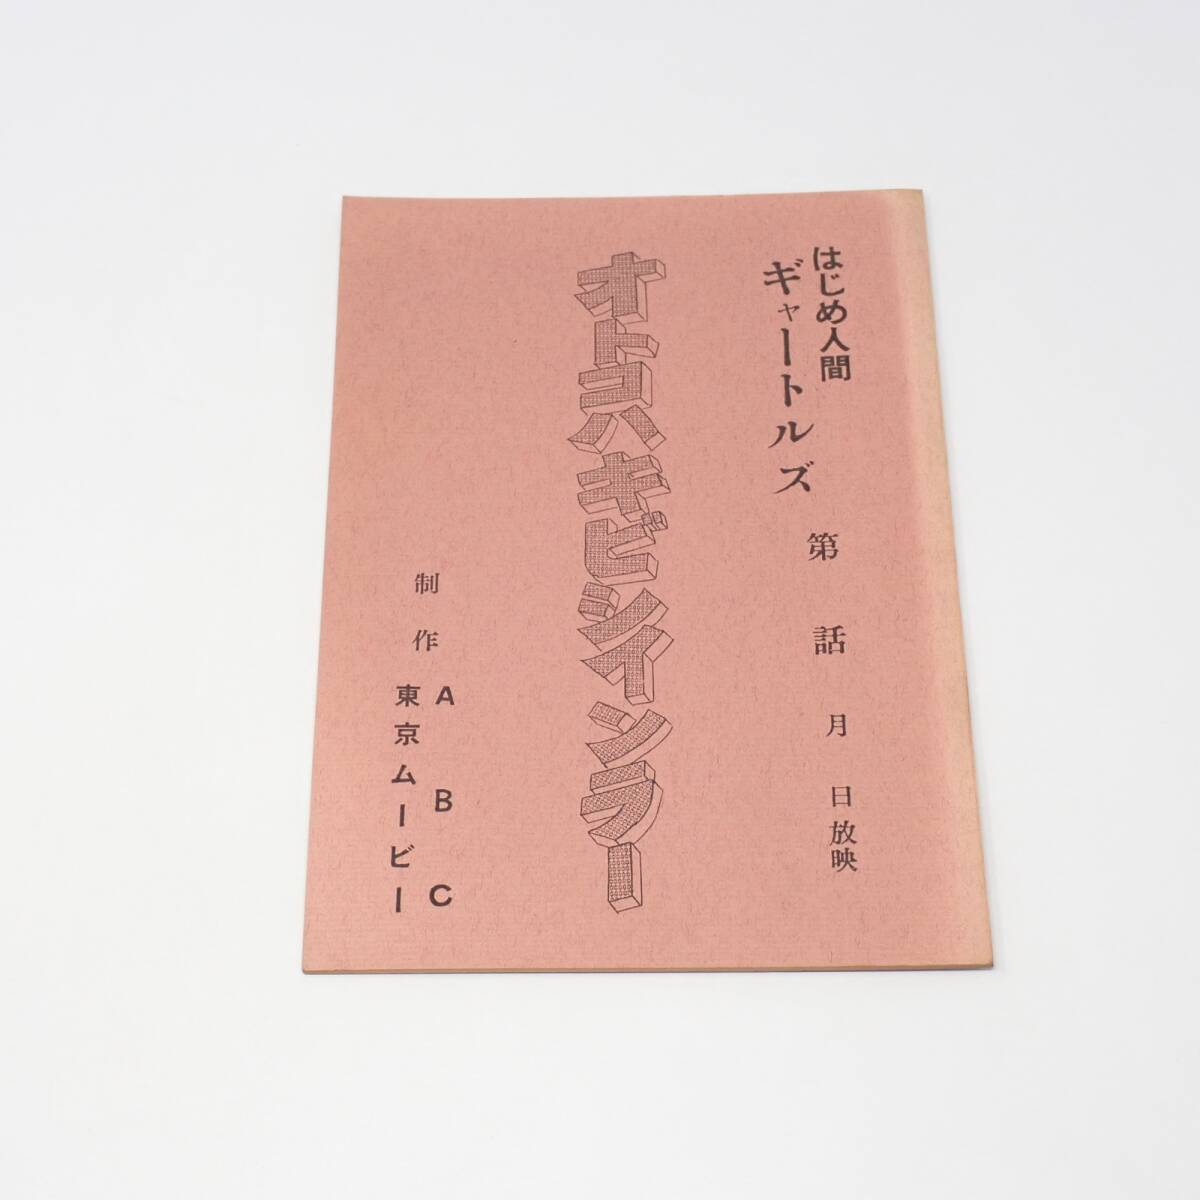 はじめ人間
ギャートルズ
第　話　月　日放映
オトコハキビシインラー
制作
ABC
東京ムービー